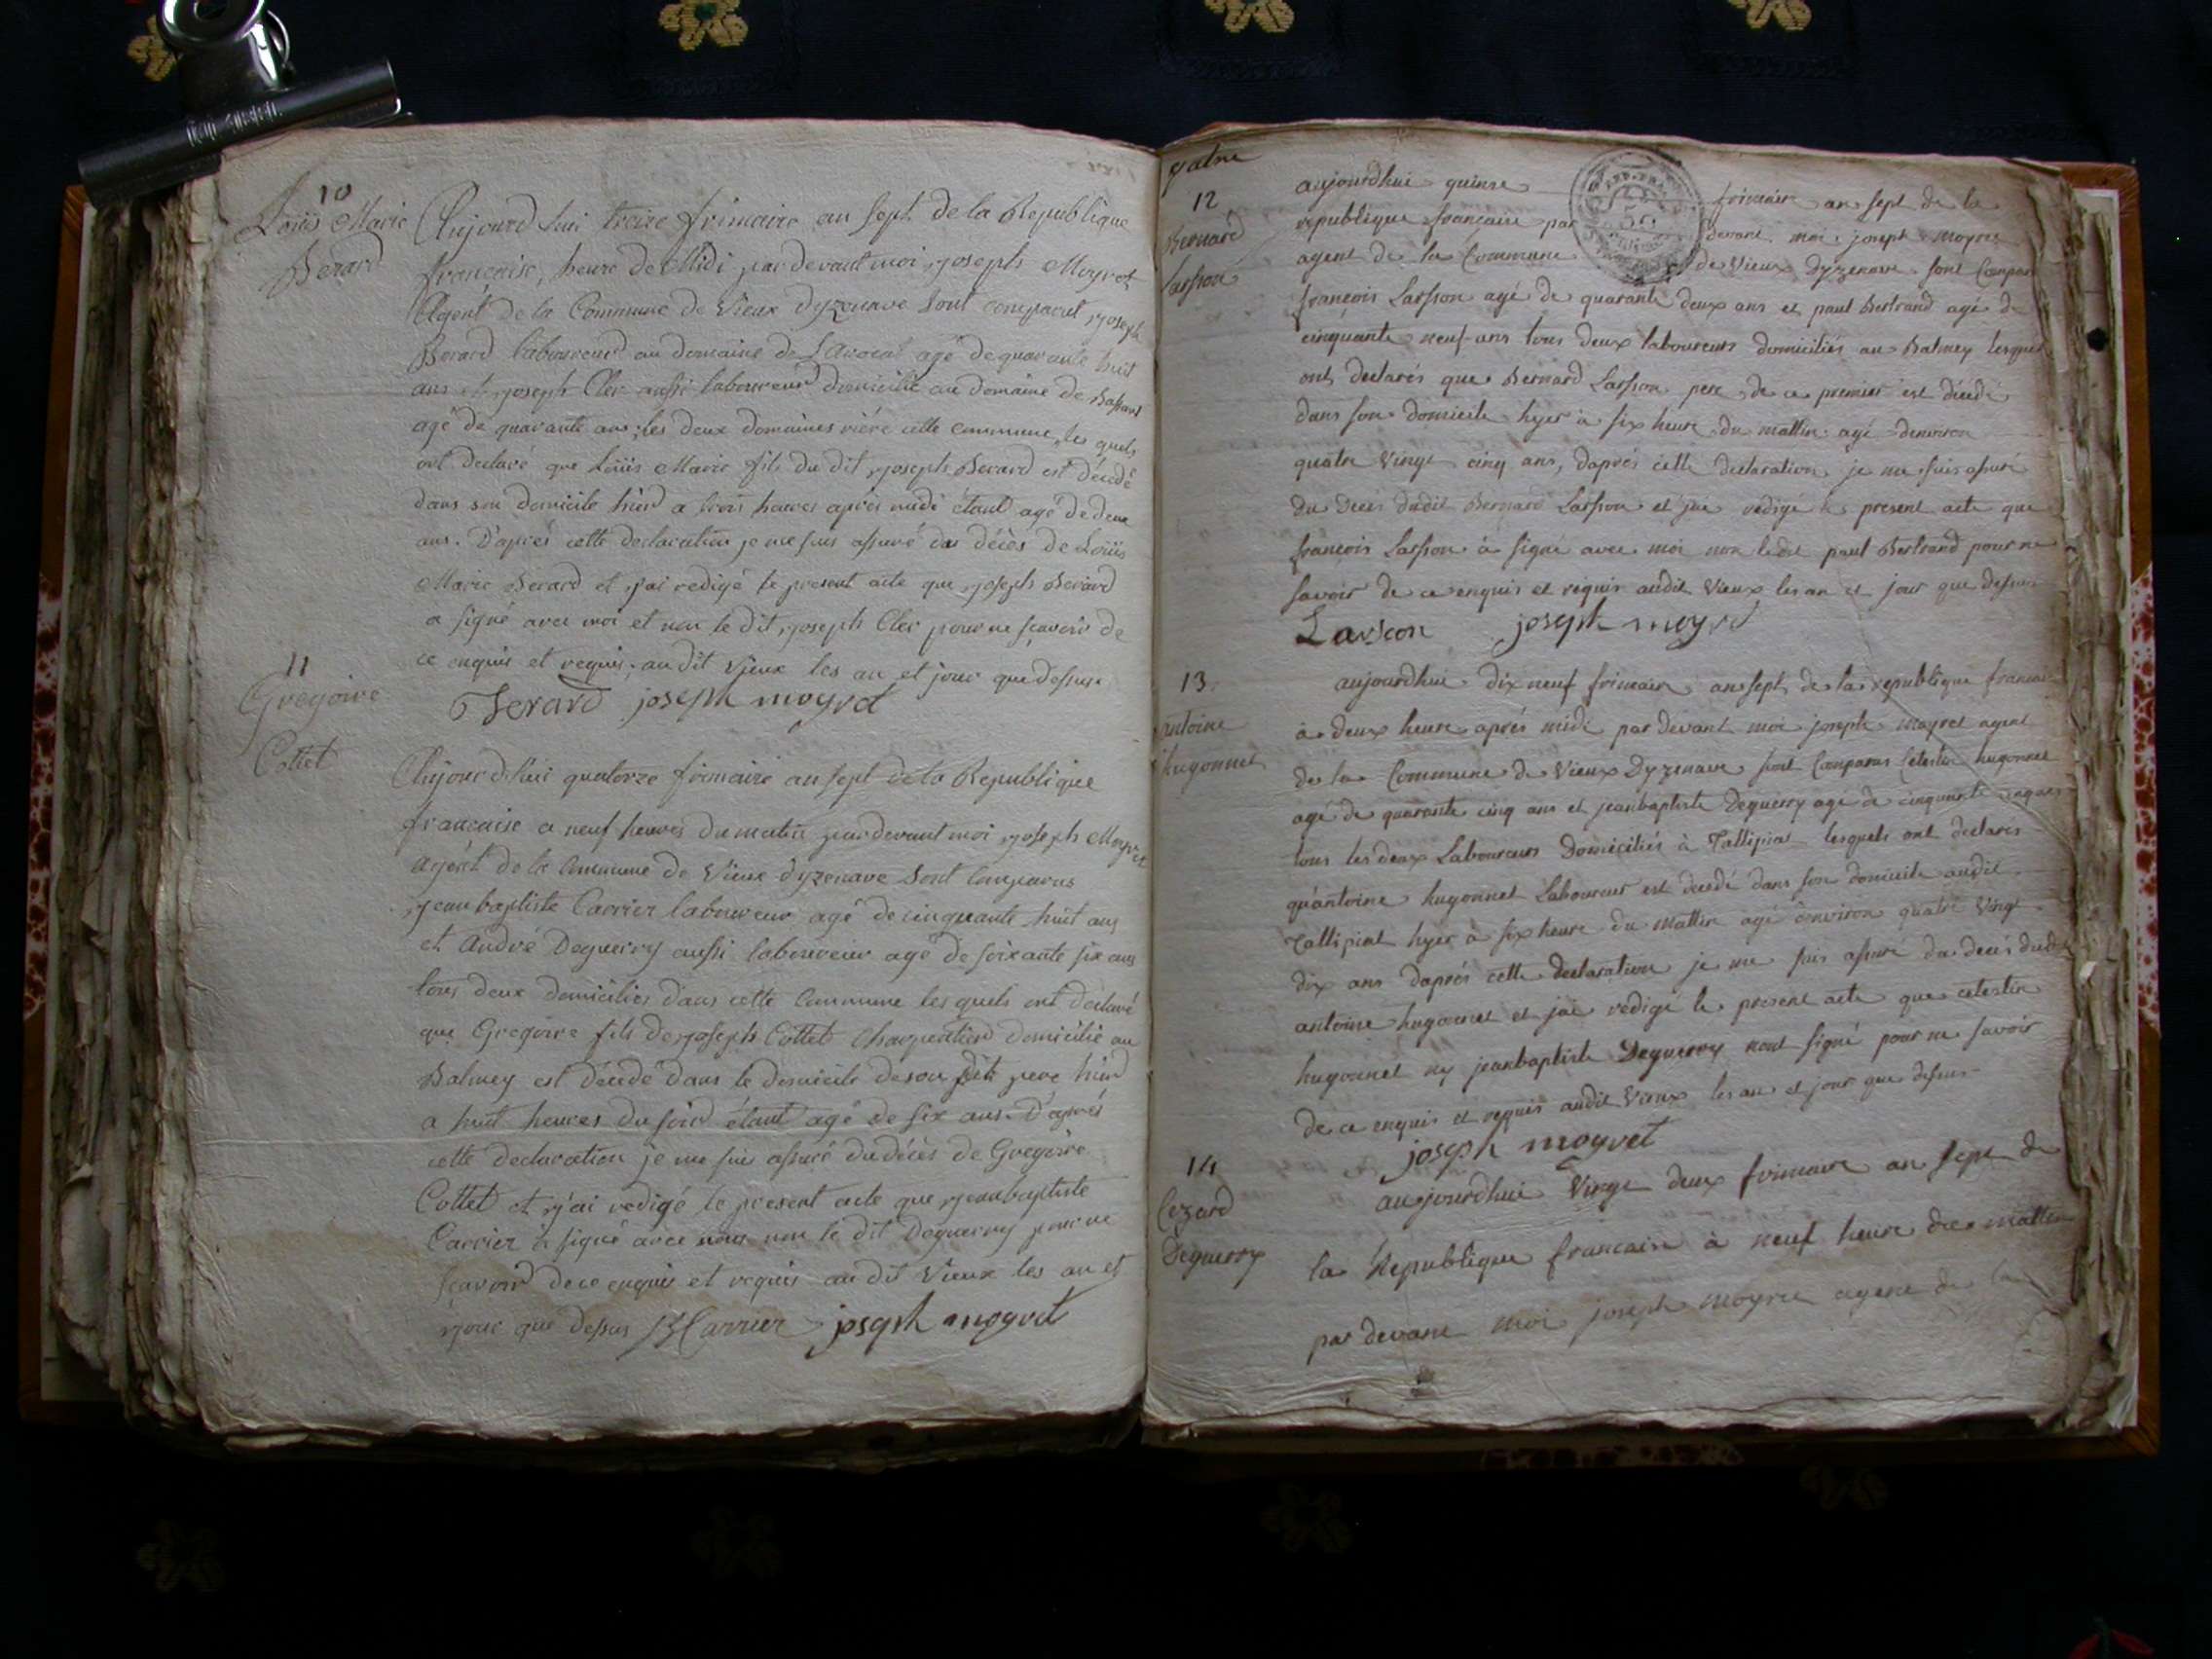 10
Loüis Marie
Berard
Aujourd hui treize frimaire an sept de la Republique
francaise, heure de Midi par devant moi joseph Moyret
Agent de la Commune de Vieux dyzenave sont comparut joseph
Berard laboureur au domaine de L'Avocat agé de quarante huit
ans et joseph Cler aussi laboureur domicilié au domaine de
agé de quarante ans, les deux domaines rière cette commune, les quels
ont declaré que Loüis Marie fils du dit joseph Berard est décedé
dans son domicile hier a trois heures après midi étant agé de deux
ans. D'après cette declaration je me suis assuré du décès de Loüis
Marie Berard et j'ai redigé le present acte que joseph Berard
a signé avec moi et non le dit joseph Cler pour ne sçavoir de
ce enquis et requis, au dit Vieux les an et jour que dessus.
Berard joseph moyret
11
Gregoire
Cottet
Aujourdhui quatorze frimaire an sept de la Republique
francaise a neuf heures du matin par devant moi joseph Moyret
agent de la Commune de Vieux dyzenave sont comparus
jean baptiste Carrier laboureur agé de cinquante huit ans
et André Deguerry aussi laboureur agé de soixante six ans
tous deux domiciliés dans cette Commune les quels ont déclaré
que Gregoire fils de joseph Cottet Charpentier domicilié au
Balmey est décedé dans le domicile de son dit pere hier
a huit heures du soir étant agé de six ans. D'après
cette declaration je me suis assuré du décès de Gregoire
Cottet et j'ai redigé le present acte que jean baptiste
Carrier a signé avec nous non le dit Deguerry pour ne
sçavoir de ce enquis et requis au dit Vieux les an et
jour que dessus JB Carrier joseph moyret
12
Bernard
Larsson
aujourdhui quinze frimaire an sept de la
republique française par devant moi joseph moyret
agent de la Commune de Vieux Dyzenave sont Compar
françois Larsson agé de quarante deux ans et paul Bertrand agé de
cinquante neuf ans tous deux laboureurs domiciliés au Balmey lesquels
ont declarés que Bernard Larsson pere de ce premier est décedé
dans son domicile hyer à six heure du mattin agé denviron
quatre vingt cinq ans, daprés cette declaration je me suis assuré
du decés dudit Bernard Larsson et jai redigé le present acte que
françois Larsson à signé avec moi non ledit paul Bertrand pour ne
savoir de ce enquis et requis audit Vieux les an et jour que dessus
Larscon joseph moyret
13.
antoine
hugonnet
aujourdhui dix neuf frimaire an sept de la republique francai
à deux heure aprés midi par devant moi joseph moyret agent
de la Commune de Vieux Dyzenave sont Comparus Celestin hugonnet
agé de quarante cinq ans et jeanbaptiste Deguerry agé de cinquante
tous les deux Laboureurs Domiciliés à Tallipiat lesquels ont declarés
quantoine hugonnet Laboureur est decedé dans son domicile audit
Tallipiat hyer à six heure du mattin agé denviron quatre vingt
dix ans daprés cette declaration je me suis assuré du decés dudit
antoine hugonnet et jai redigé le present acte que celestin
hugonnet ny jeanbaptiste Deguerry nont signé pour ne savoir
de ce enquis et requis audit Vieux les an et jour que dessus
joseph moyret
14
Cezard
Deguerry
aujourdhui Vingt deux frimaire an sept de
la Republique francaise à neuf heure du mattin
par devant moi joseph moyret agent de la